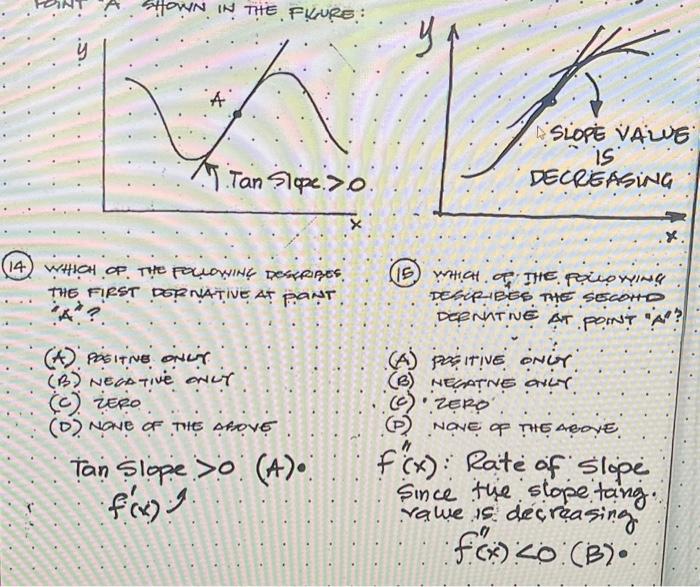 POINT "A" SHOWN IN THE FIGURE:
y
A
Tan Slope > 0
x
y
SLOPE VALUE
IS
DECREASING
x
14 WHICH OF THE FOLLOWING DESCRIBES
THE FIRST DERIVATIVE AT POINT
"A"?
(A) POSITIVE ONLY
(B) NEGATIVE ONLY
(C) ZERO
(D) NONE OF THE ABOVE
Tan Slope >0 (A).
f'(x)
15 WHICH OF THE FOLLOWING
DESCRIBES THE SECOND
DERIVATIVE AT POINT "A"?
(A) POSITIVE ONLY
(B) NEGATIVE ONLY
(C) ZERO
(D) NONE OF THE ABOVE
f"(x): Rate of slope
Since the slope tang.
value is decreasing
f"(x) <0 (B).